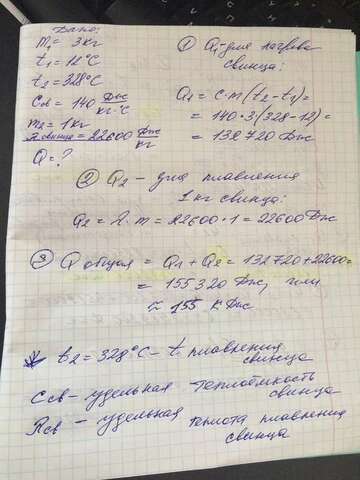 Дано:
m₁ = 3кг
t₁ = 12°C
t₂ = 328°C
Cсв = 140 Дж/кг·°C
m₂ = 1кг
λ свинца = 22600 Дж/кг
Q = ?
① Q₁ - для нагрева
свинца:
Q₁ = c·m(t₂-t₁) =
= 140·3(328-12) =
= 132720 Дж
② Q₂ - для плавления
1 кг свинца:
Q₂ = λ·m = 22600·1 = 22600 Дж
③ Q общая = Q₁ + Q₂ = 132720+22600=
= 155320 Дж, или
≈ 155 кДж
* t₂ = 328°C - t° плавления
свинца
Cсв - удельная теплоёмкость
свинца
Rсв - удельная теплота плавления
свинца